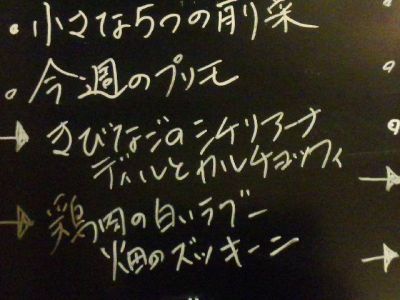 ・小さな5つの前菜
・今週のプリモ
→ きびなごのシケリアーナ
ディルとカルチョッフィ
→ 鶏肉の白いラグー
畑のズッキーニ